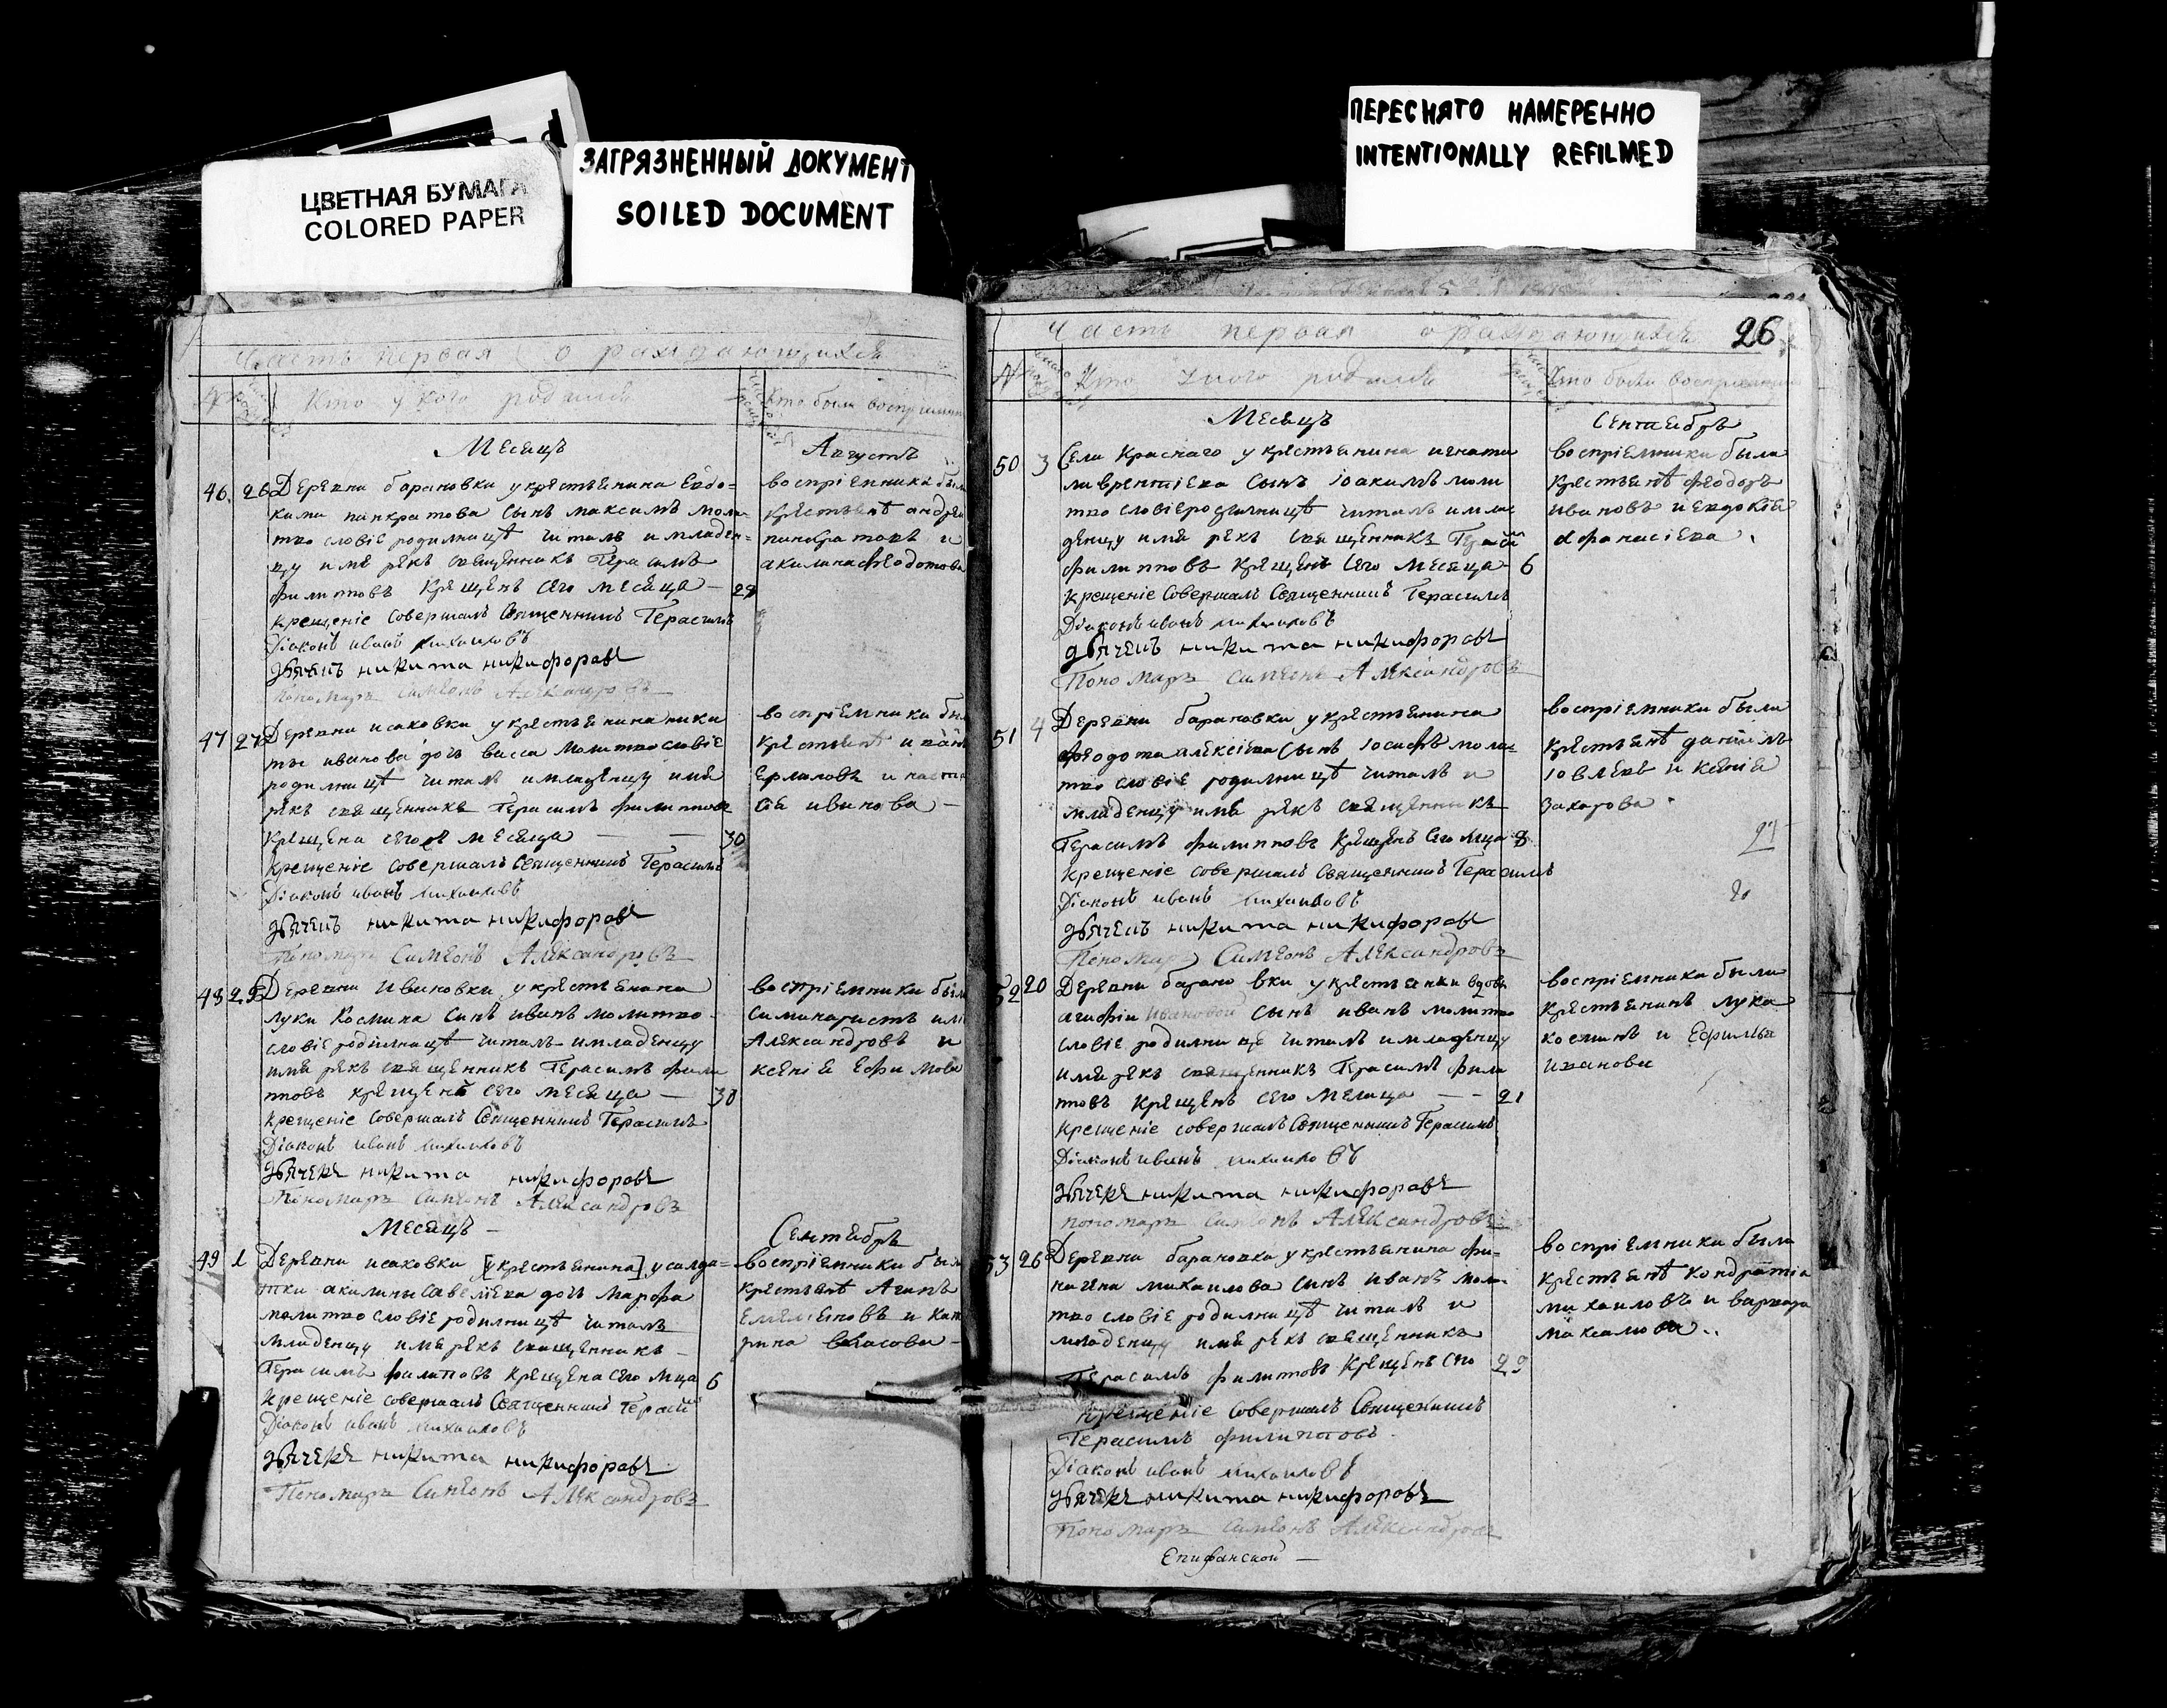 ПЕРЕСНЯТО НАМЕРЕННО
INTENTIONALLY REFILMED
ЗАГРЯЗНЕННЫЙ ДОКУМЕНТ
SOILED DOCUMENT
ЦВЕТНАЯ БУМАГА
COLORED PAPER
Часть первая о раждающихся
№
Кто у кого родился
Кто были восприемники
Месяцъ
Августъ
46. 26 Деревни барановки у крестьянина Евдо=
кима панкратова сынъ максимъ моли=
тво словіе родилницѣ читалъ и младен=
цу имя рекъ священникъ Герасимъ
филиповъ Крещенъ сего месяца — 29
крещеніе совершалъ Священникъ Герасимъ
Діаконъ иванъ михаиловъ
дьячекъ никита никифоровъ
Пономарь Симеонъ Александровъ
воспріемники были
крестьянѣ андрей
панкратовъ и
акилина феодотова
47 27 Деревни исаковки у крестьянина ники
ты иванова дочь васса молитвословіе
родилницѣ читалъ и младенцу имя
рекъ священникъ Герасимъ филиповъ
Крещена сего месяца — — 30
крещеніе совершалъ Священникъ Герасимъ
Діаконъ иванъ михаиловъ
дьячекъ никита никифоровъ
Пономарь Симеонъ Александровъ
воспріемники были
крестьянѣ иванъ
Ермиловъ и наста
сія иванова —
48 29 Деревни Ивановки у крестьянина
луки Космина сынъ иванъ молитво
словіе родилницѣ читалъ и младенцу
имя рекъ священникъ Герасимъ фили
повъ крещенъ сего месяца — 30
крещеніе совершалъ Священникъ Герасимъ
Діаконъ иванъ михаиловъ
дьячекъ никита никифоровъ
Пономарь Симеонъ Александровъ
воспріемники были
Александровъ и
ксенія Ефимова
Месяцъ —
Сентябрь
49 1 Деревни исаковки [у крестьянина] у салда=
тки акилины Савеліева дочь марфа
молитво словіе родилницѣ читалъ
младенцу имя рекъ священникъ —
Герасимъ филиповъ Крещена сего мца 6
крещеніе совершалъ Священникъ Герасим
Діаконъ иванъ михаиловъ
дьячекъ никита никифоровъ
Пономарь Симеонъ Александровъ
воспріемники были
крестьянѣ
Емеліяновъ и кате
рина власова —
Часть первая о раждающихся 26
№
Кто у кого родился
Кто были восприемники
Месяцъ
Сентябрь
50 3 Села Краснаго у крестьянина игнатия
лаврентіева сынъ іоакимъ моли
тво словіе родилницѣ читалъ и мла
денцу имя рекъ священникъ Гераси
филиповъ крещенъ сего месяца 6
крещеніе совершалъ Священникъ Герасимъ
Діаконъ иванъ михаиловъ
дьячекъ никита никифоровъ
Пономарь Симеонъ Александровъ
воспріемники были
крестьянѣ феодоръ
ивановъ и евдокія
афанасіева.
51 4 Деревни барановки у крестьянина
феодота алексіева сынъ іосифъ моли=
тво словіе родилницѣ читалъ и
младенцу имя рекъ священникъ
Герасимъ филиповъ крещенъ сего мца 8
крещеніе совершалъ Священникъ Герасимъ
Діаконъ иванъ михаиловъ
дьячекъ никита никифоровъ
Пономарь Симеонъ Александровъ
воспріемники были
крестьянѣ даніилъ
іовлевъ и ксенія
захарова
52 20 Деревни барановки у крестьянки вдовы
агафіи Ивановой сынъ иванъ молитво
словіе родилнице читалъ и младенцу
имя рекъ священникъ Герасимъ фили
повъ крещенъ сего месяца — - 21
крещеніе совершалъ Священникъ Герасимъ
Діаконъ иванъ михаиловъ
дьячекъ никита никифоровъ
пономарь Симеонъ Александровъ
воспріемники были
крестьянинъ лука
косминъ и
иванова
53 26 Деревни барановки у крестьянина фи=
нагена михаилова сынъ иванъ моли=
тво словіе родилницѣ читалъ и
младенцу имя рекъ священникъ
Герасимъ филиповъ крещенъ сего 29
крещеніе совершалъ Священникъ
Герасимъ филиповъ.
Діаконъ иванъ михаиловъ
дьячекъ никита никифоровъ
Пономарь Симеонъ Александровъ
воспріемники были
крестьянѣ кондратій
михаиловъ и варвара
максимова..
Епифанской —